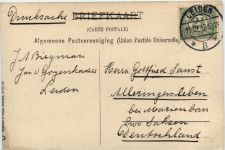 Drucksache BRIEFKAART
(CARTE POSTALE)
Algemeene Postvereeniging (Union Postale Universelle)
LEIDEN
J A Biegman
Jan v Goyenkade
Leiden
Herrn Gottfried Sanst
Alleringersleben
bei Marienborn
Prov. Sachsen
Deutschland